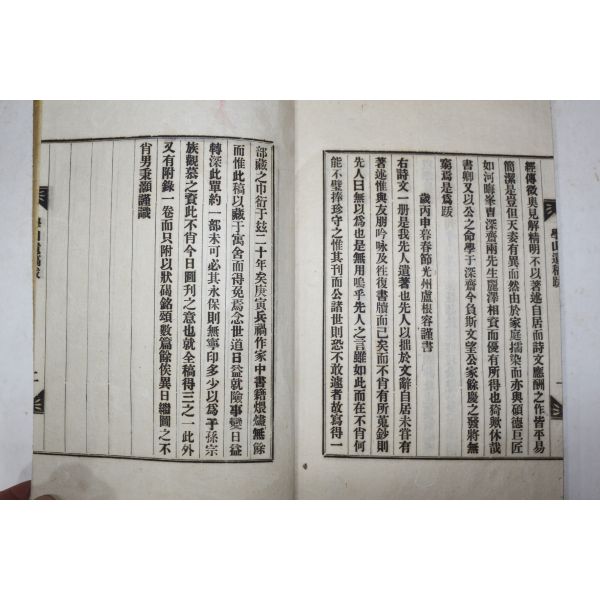 經傳微奧見解精明不以著述自居而詩文應酬之作皆平易
簡潔是豈但天姿有異而然由於家庭擩染而亦與碩德巨匠
如河晦峯曺深齋兩先生麗澤相資而優有所得也猗歟休哉
書卿又以公之命學于深齋今負斯文望公家餘慶之發將無
窮焉是爲跋
歲丙申暮春節光州盧根容謹書
右詩文一册是我先人遺著也先人以拙於文辭自居未甞有
著述惟與友朋吟咏及徃復書牘而已矣而不肖有所蒐鈔則
先人曰無以爲也是無用嗚乎先人之言雖如此而在不肖何
能不璧捧珍守之惟其刊而公諸世則恐不敢遽者故寫得一
部藏之巾衍于玆二十年矣庚寅兵禍作家中書籍煨燼無餘
而惟此稿以藏于寓舍而得免焉念世道日益就險事變日益
轉深此單約一部未可必其永保則無寧印多少以爲子孫宗
族觀慕之資此不肖今日圖刊之意也就全稿得三之一此外
又有附錄一卷而只附以狀碣銘頌數篇餘俟異日繼圖之不
肖男秉灝謹識